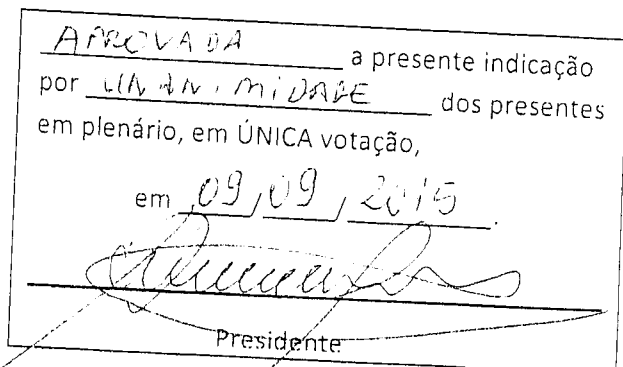 APROVADA a presente indicação
por UNANIMIDADE dos presentes
em plenário, em ÚNICA votação,
em 09/09/2015.
Presidente